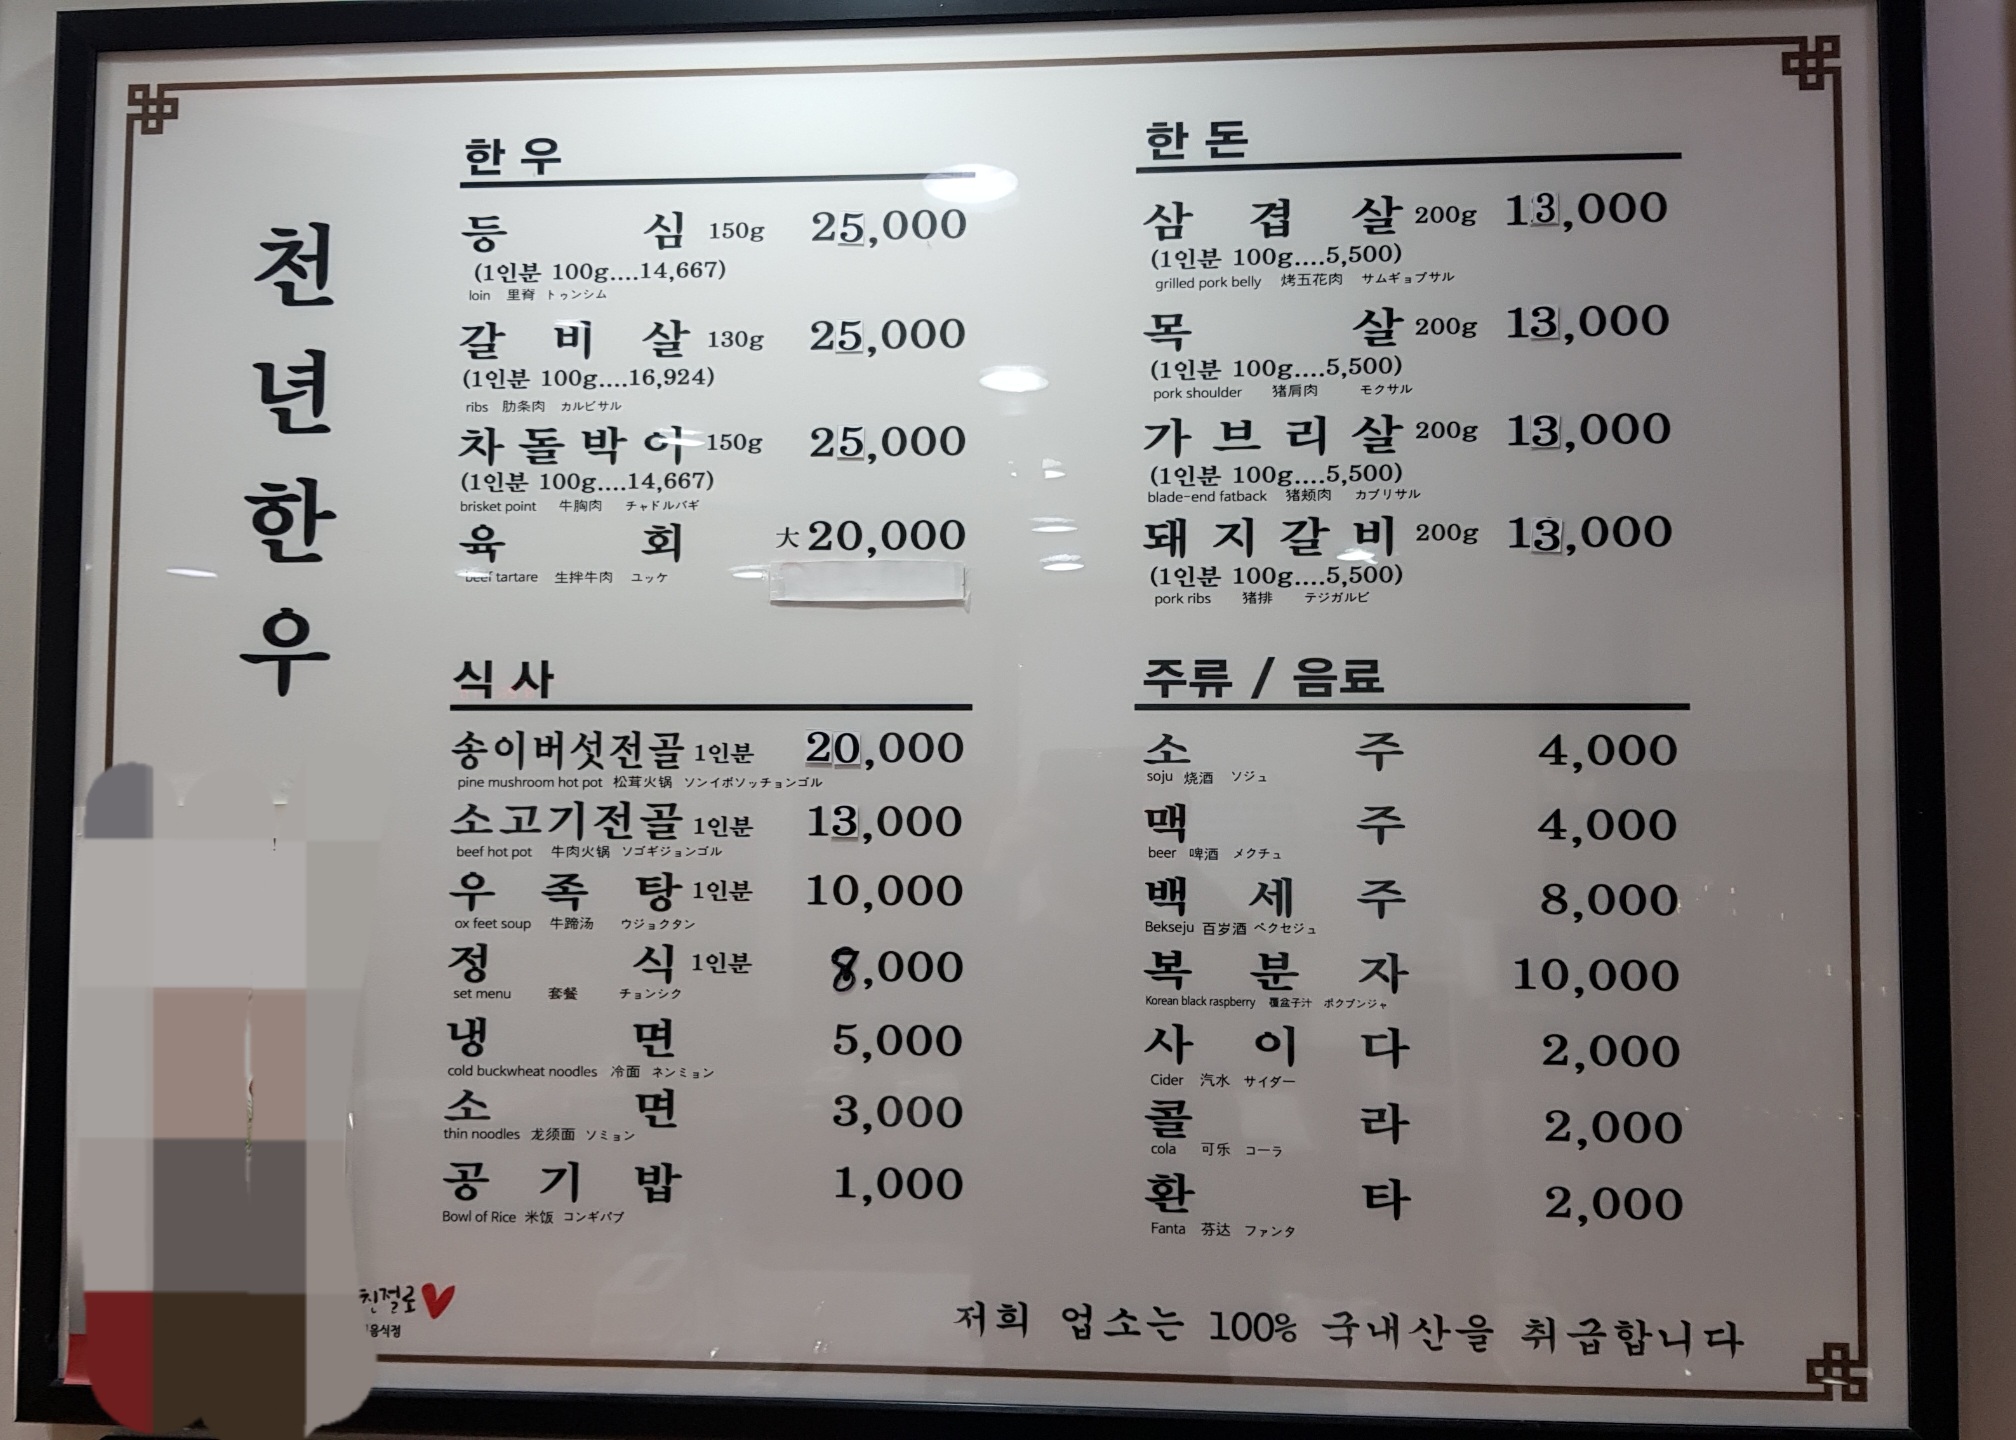 천년한우
한우
등심 150g 25,000
(1인분 100g....14,667)
loin 里脊 トゥンシム
갈비살 130g 25,000
(1인분 100g....16,924)
ribs 肋条肉 カルビサル
차돌박이 150g 25,000
(1인분 100g....14,667)
brisket point 牛胸肉 チャドルバギ
육회 大 20,000
beef tartare 生拌牛肉 ユッケ
한돈
삼겹살 200g 13,000
(1인분 100g....5,500)
grilled pork belly 烤五花肉 サムギョプサル
목살 200g 13,000
(1인분 100g....5,500)
pork shoulder 猪肩肉 モクサル
가브리살 200g 13,000
(1인분 100g....5,500)
blade-end fatback 猪颊肉 カブリサル
돼지갈비 200g 13,000
(1인분 100g....5,500)
pork ribs 猪排 テジガルビ
식사
송이버섯전골 1인분 20,000
pine mushroom hot pot 松茸火锅 ソンイボソッチョンゴル
소고기전골 1인분 13,000
beef hot pot 牛肉火锅 ソゴギジョンゴル
우족탕 1인분 10,000
ox feet soup 牛蹄汤 ウジョクタン
정식 1인분 8,000
set menu 套餐 チョンシク
냉면 5,000
cold buckwheat noodles 冷面 ネンミョン
소면 3,000
thin noodles 龙须面 ソミョン
공기밥 1,000
Bowl of Rice 米饭 コンギバブ
주류 / 음료
소주 4,000
soju 烧酒 ソジュ
맥주 4,000
beer 啤酒 メクチュ
백세주 8,000
Bekseju 百岁酒 ペクセジュ
복분자 10,000
Korean black raspberry 覆盆子汁 ボクブンジャ
사이다 2,000
Cider 汽水 サイダー
콜라 2,000
cola 可乐 コーラ
환타 2,000
Fanta 芬达 ファンタ
친절로
음식점
저희 업소는 100% 국내산을 취급합니다